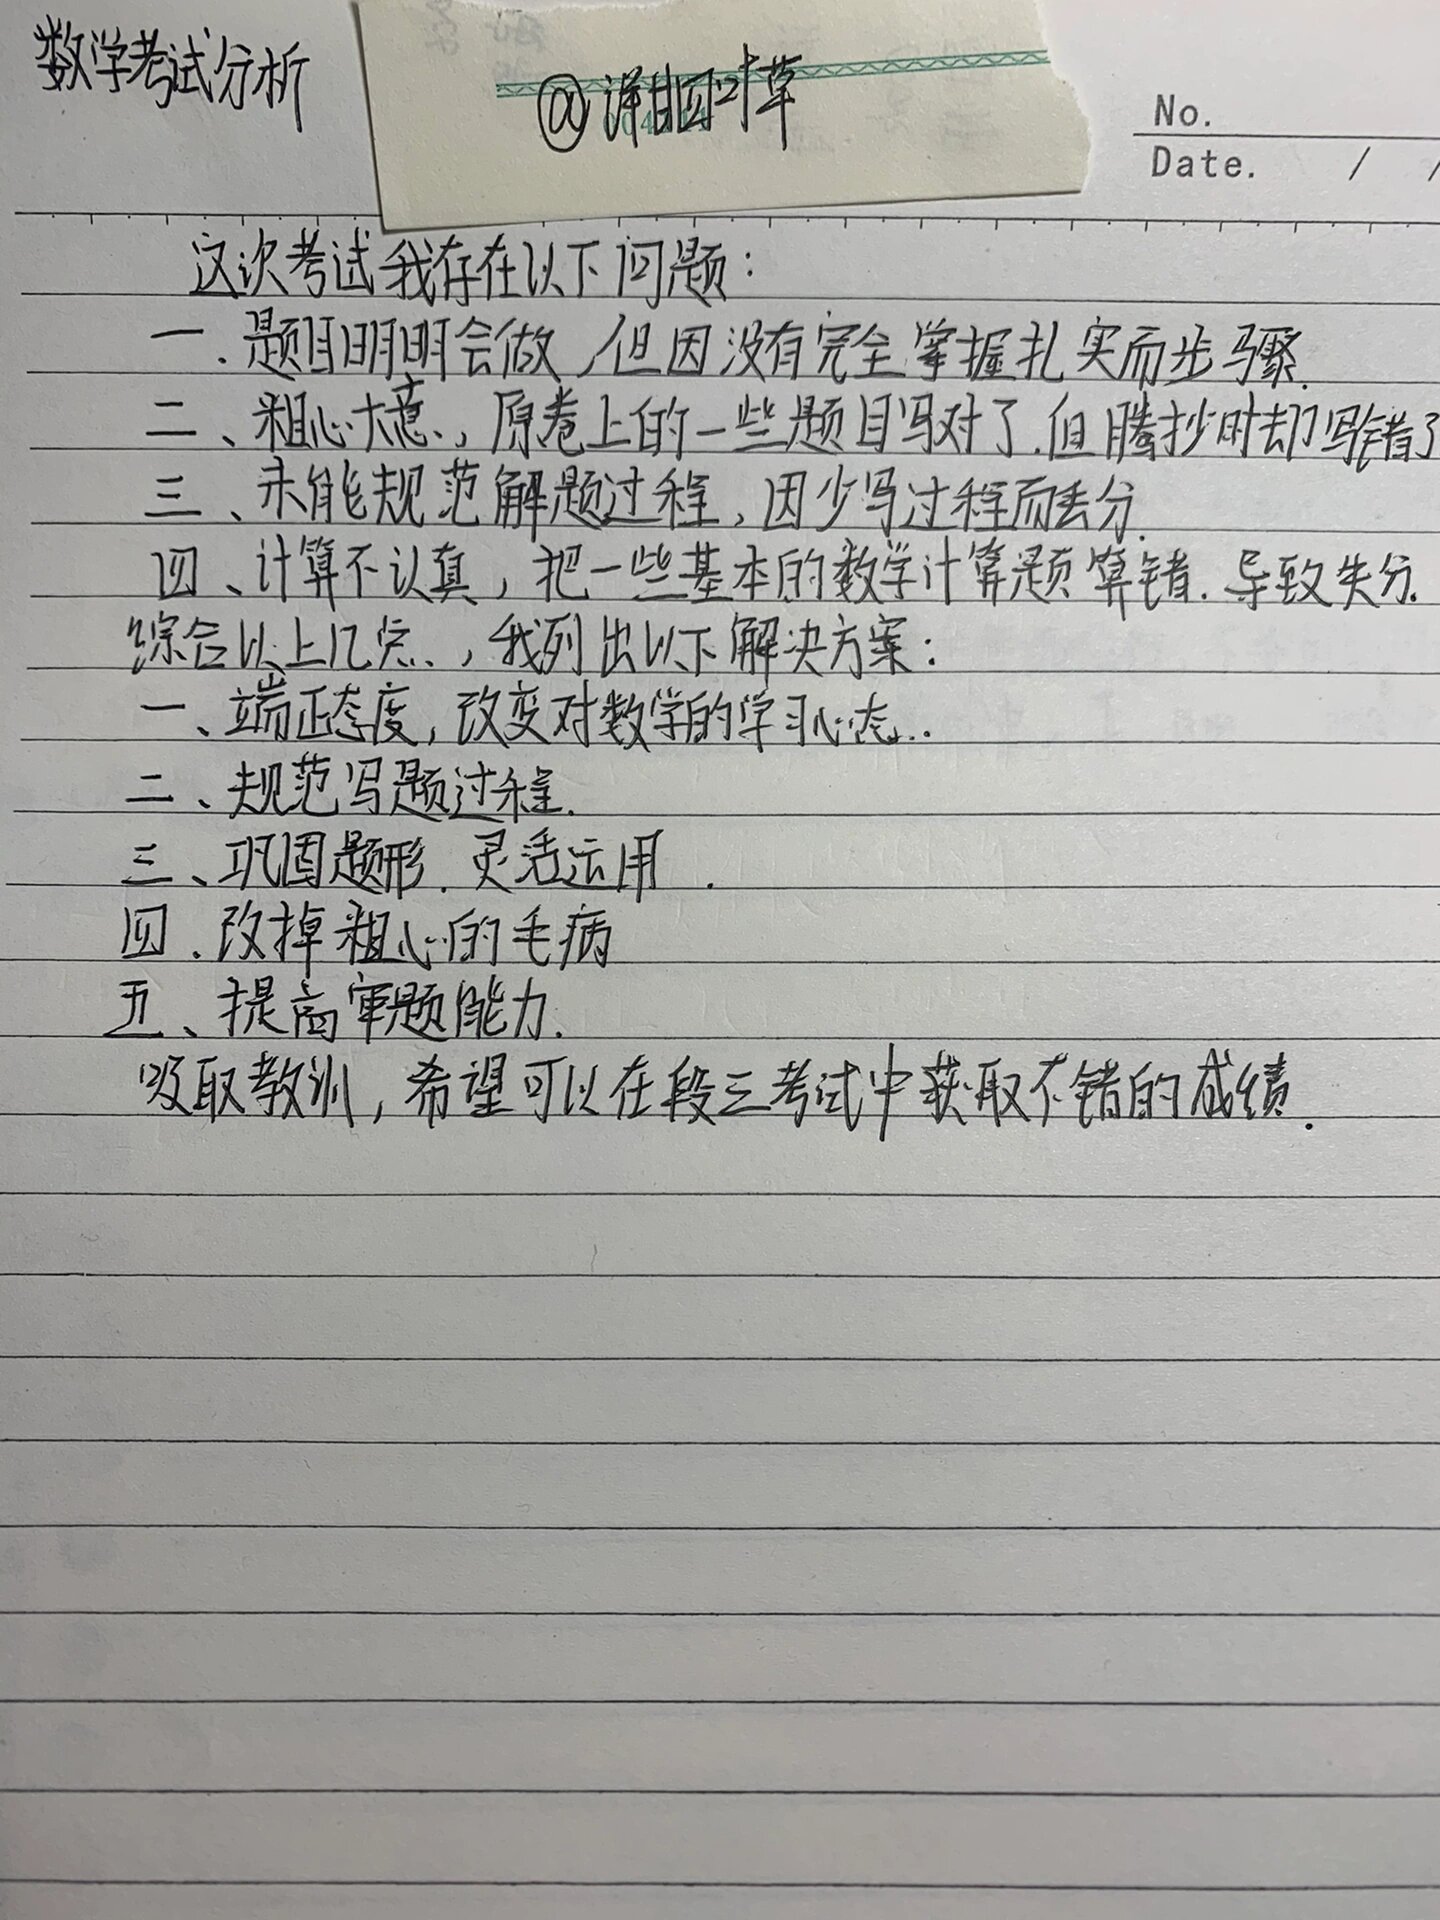 数学考试分析
@洋甘四叶草
No.
Date. / /
这次考试我存在以下问题:
一.题目明明会做,但因没有完全掌握扎实而步骤.
二、粗心大意,原卷上的一些题目写对了.但腾抄时却写错了
三、未能规范解题过程,因少写过程而丢分.
四、计算不认真,把一些基本的数学计算题算错.导致失分.
综合以上几点,我列出以下解决方案:
一、端正态度,改变对数学的学习心态..
二、规范写题过程.
三、巩固题形.灵活运用.
四.改掉粗心的毛病
五、提高审题能力.
吸取教训,希望可以在段三考试中获取不错的成绩.